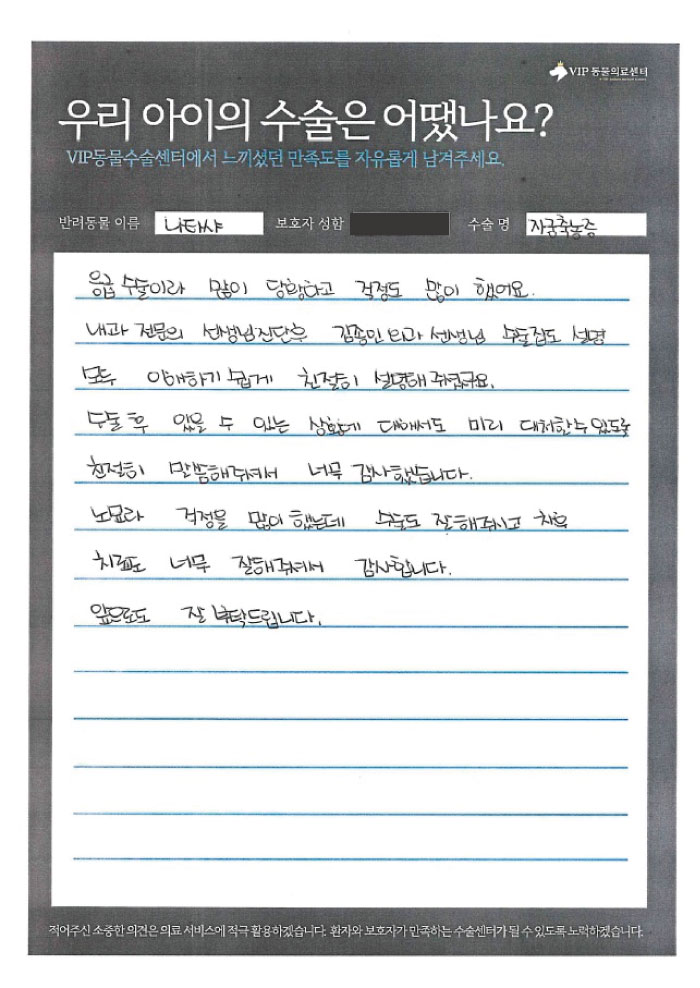 VIP 동물의료센터
우리 아이의 수술은 어땠나요?
VIP동물수술센터에서 느끼셨던 만족도를 자유롭게 남겨주세요.
반려동물 이름 나타샤 보호자 성함 수술 명 자궁축농증
응급 수술이라 많이 당황하고 걱정도 많이 했어요.
내과 전문의 선생님 진단후 김종민 외과 선생님 수술집도 설명
모두 이해하기 쉽게 친절히 설명해 주셨구요,
수술 후 있을 수 있는 상황에 대해서도 미리 대처할수있도록
친절히 말씀해주셔서 너무 감사했습니다.
노묘라 걱정을 많이 했는데 수술도 잘해주시고 차후
치료도 너무 잘해주셔서 감사합니다.
앞으로도 잘 부탁드립니다.
적어주신 소중한 의견은 의료 서비스에 적극 활용하겠습니다. 환자와 보호자가 만족하는 수술센터가 될 수 있도록 노력하겠습니다.